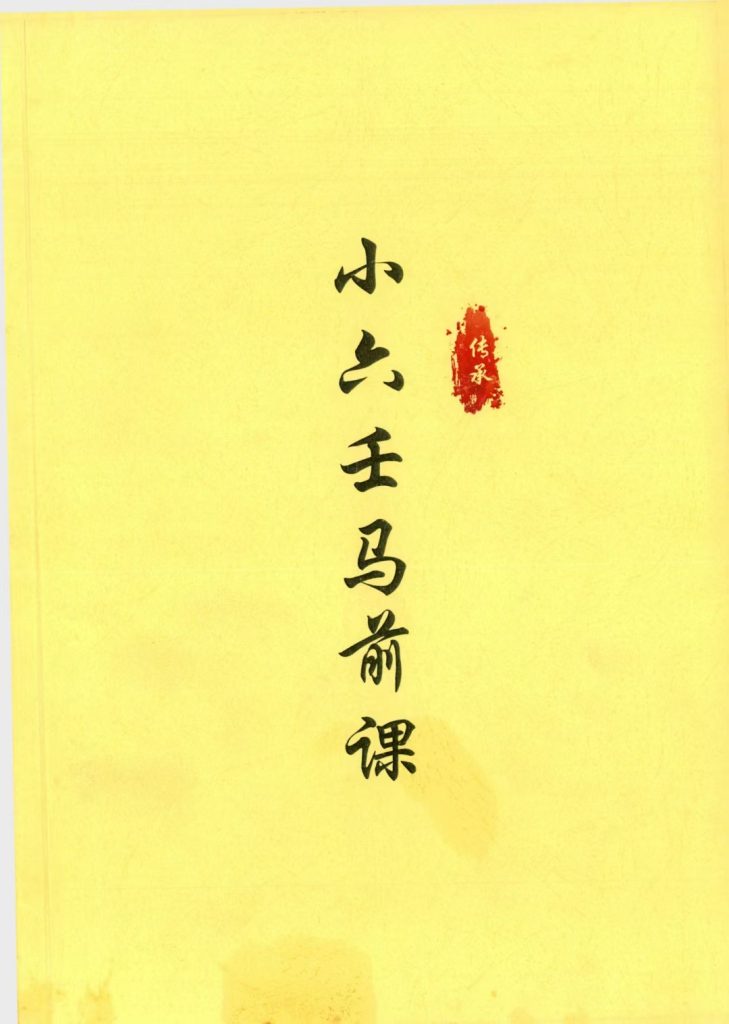 小六壬马前课
传承